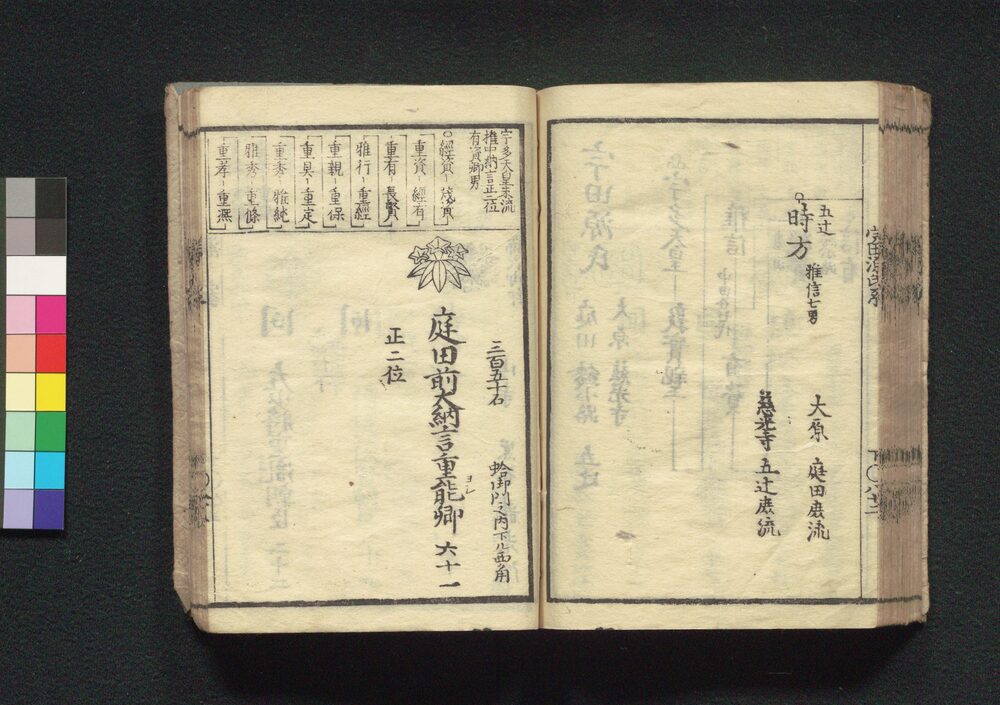 五辻
時方
雅信七男
大原 庭田庶流
慈光寺 五辻庶流
宇多天皇末流
権中納言正二位
有資卿男
経資-茂資
重資-経有
重有-長賢
雅行-重経
重親-重保
重具-重定
重秀-雅純
雅秀-重條
重孝-重熈
三百五十石
蛤御門之内下ル西角
庭田前大納言重能卿 六十一
ヨシ
正二位